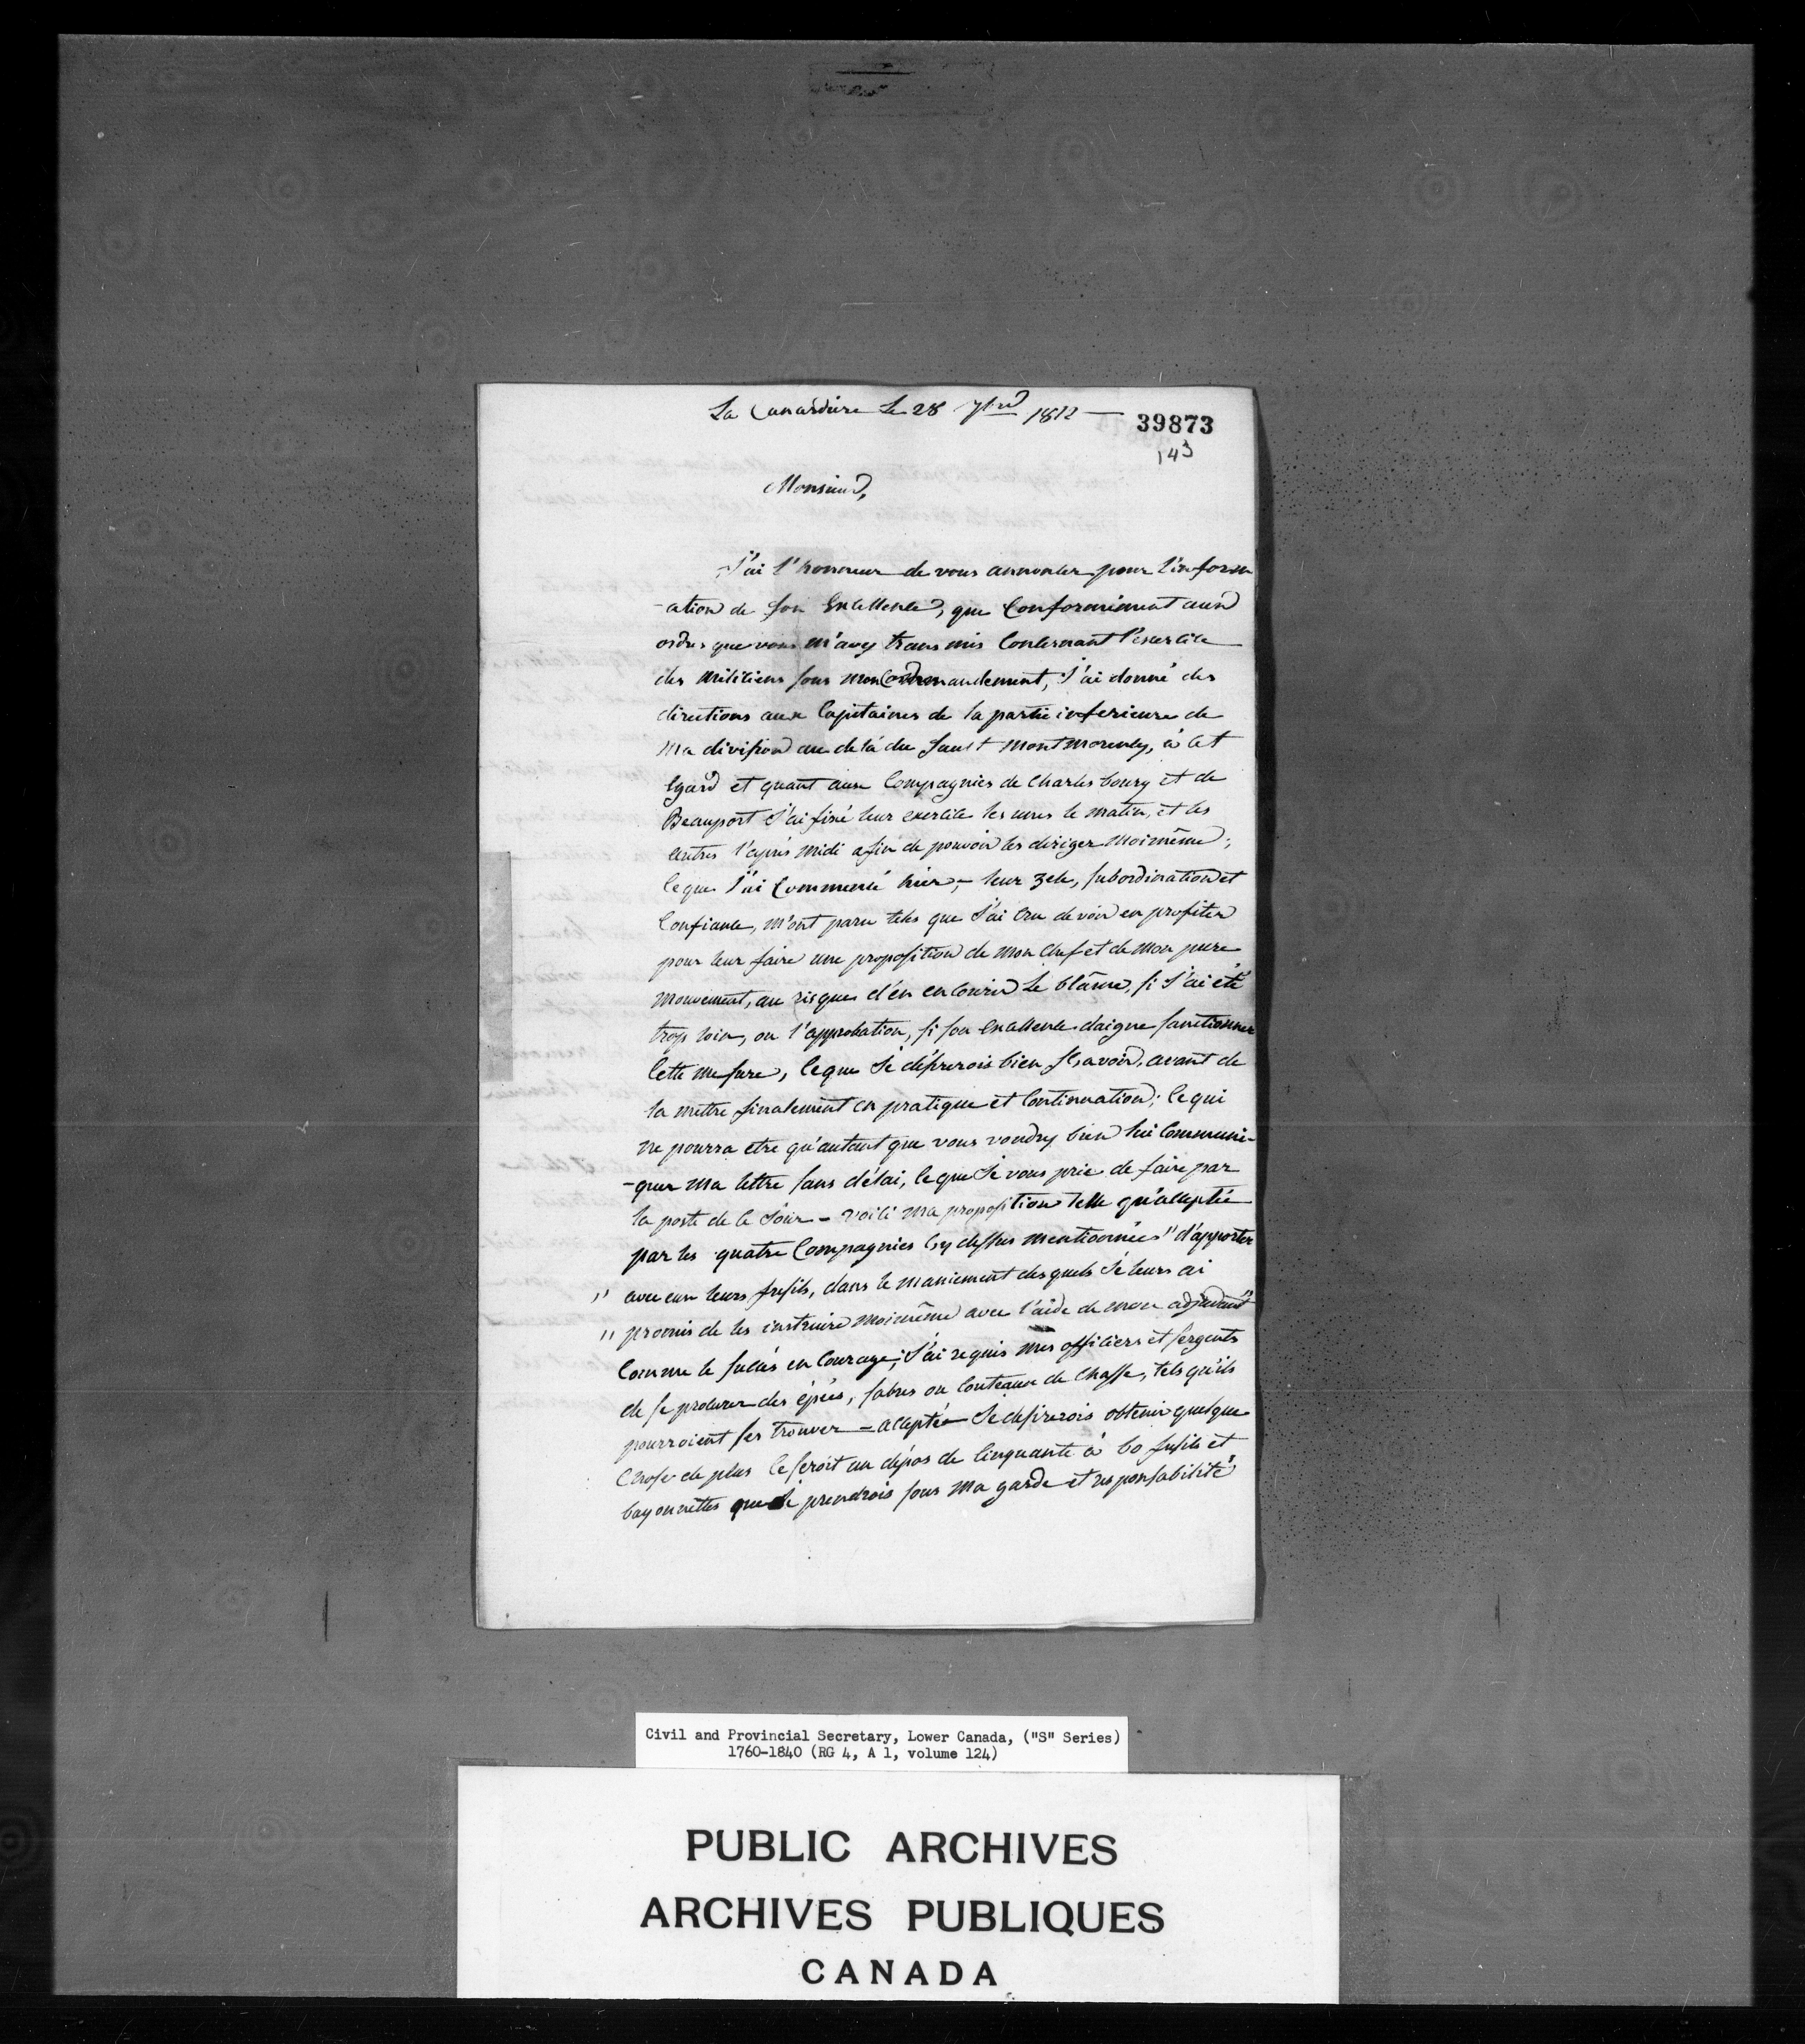 La Canardière le 28 7bre 1812 —
39873
143
Monsieur,
J'ai l'honneur de vous annoncer pour l'inform
-ation de son Excellence, que Conformément aux
ordres que vous m'avez transmis Concernant l'exercice
des Miliciens sous mon Commandement, J'ai donné des
directions aux Capitaines de la partie inferieure de
Ma division au delà du Sault Montmorency, à cet
Egard et quant aux Compagnies de Charlesbourg et de
Beauport J'ai fixé leur exercice les unes le matin, et les
autres l'après midi afin de pouvoir les diriger Moimême;
ce que J'ai Commencé hier, — leur zele, subordination et
Confiance, m'ont paru tels que J'ai Cru devoir en profiter
pour leur faire une proposition de Mon Chef et de Mon pure
Mouvement, au risques d'en encourir Le blâme, si J'ai été
trop loin, ou l'approbation, si son Excellence daigne sanctionner
Cette mesure, Ceque Je désirerois bien sçavoir, avant de
la mettre finalement en pratique et Continuation; Ce qui
ne pourra etre qu'autant que vous voudrez bien lui Communi-
-quer Ma lettre sans délai, Ce que Je vous prie de faire par
la poste de Ce Soir — voici Ma proposition telle qu'acceptée
par les quatre Compagnies Cy dessus mentionnées "d'apporter
" avec eux leurs fusils, dans le maniement desquels Je leurs ai
" promis de les instruire Moimême avec l'aide de mon adjudant"
Comme le succès encourage, J'ai requis mes officiers et sergents
de se procurer des épées, sabres ou Couteaux de Chasse, tels qu'ils
pourroient ses trouver — acceptée Je desirerois obtenir quelque
Chose de plus Ce seroit un dépos de Cinquante à 60 fusils et
bayonnettes que Je prendrois sous Ma garde et responsabilité
Civil and Provincial Secretary, Lower Canada, ("S" Series)
1760-1840 (RG 4, A 1, volume 124)
PUBLIC ARCHIVES
ARCHIVES PUBLIQUES
CANADA